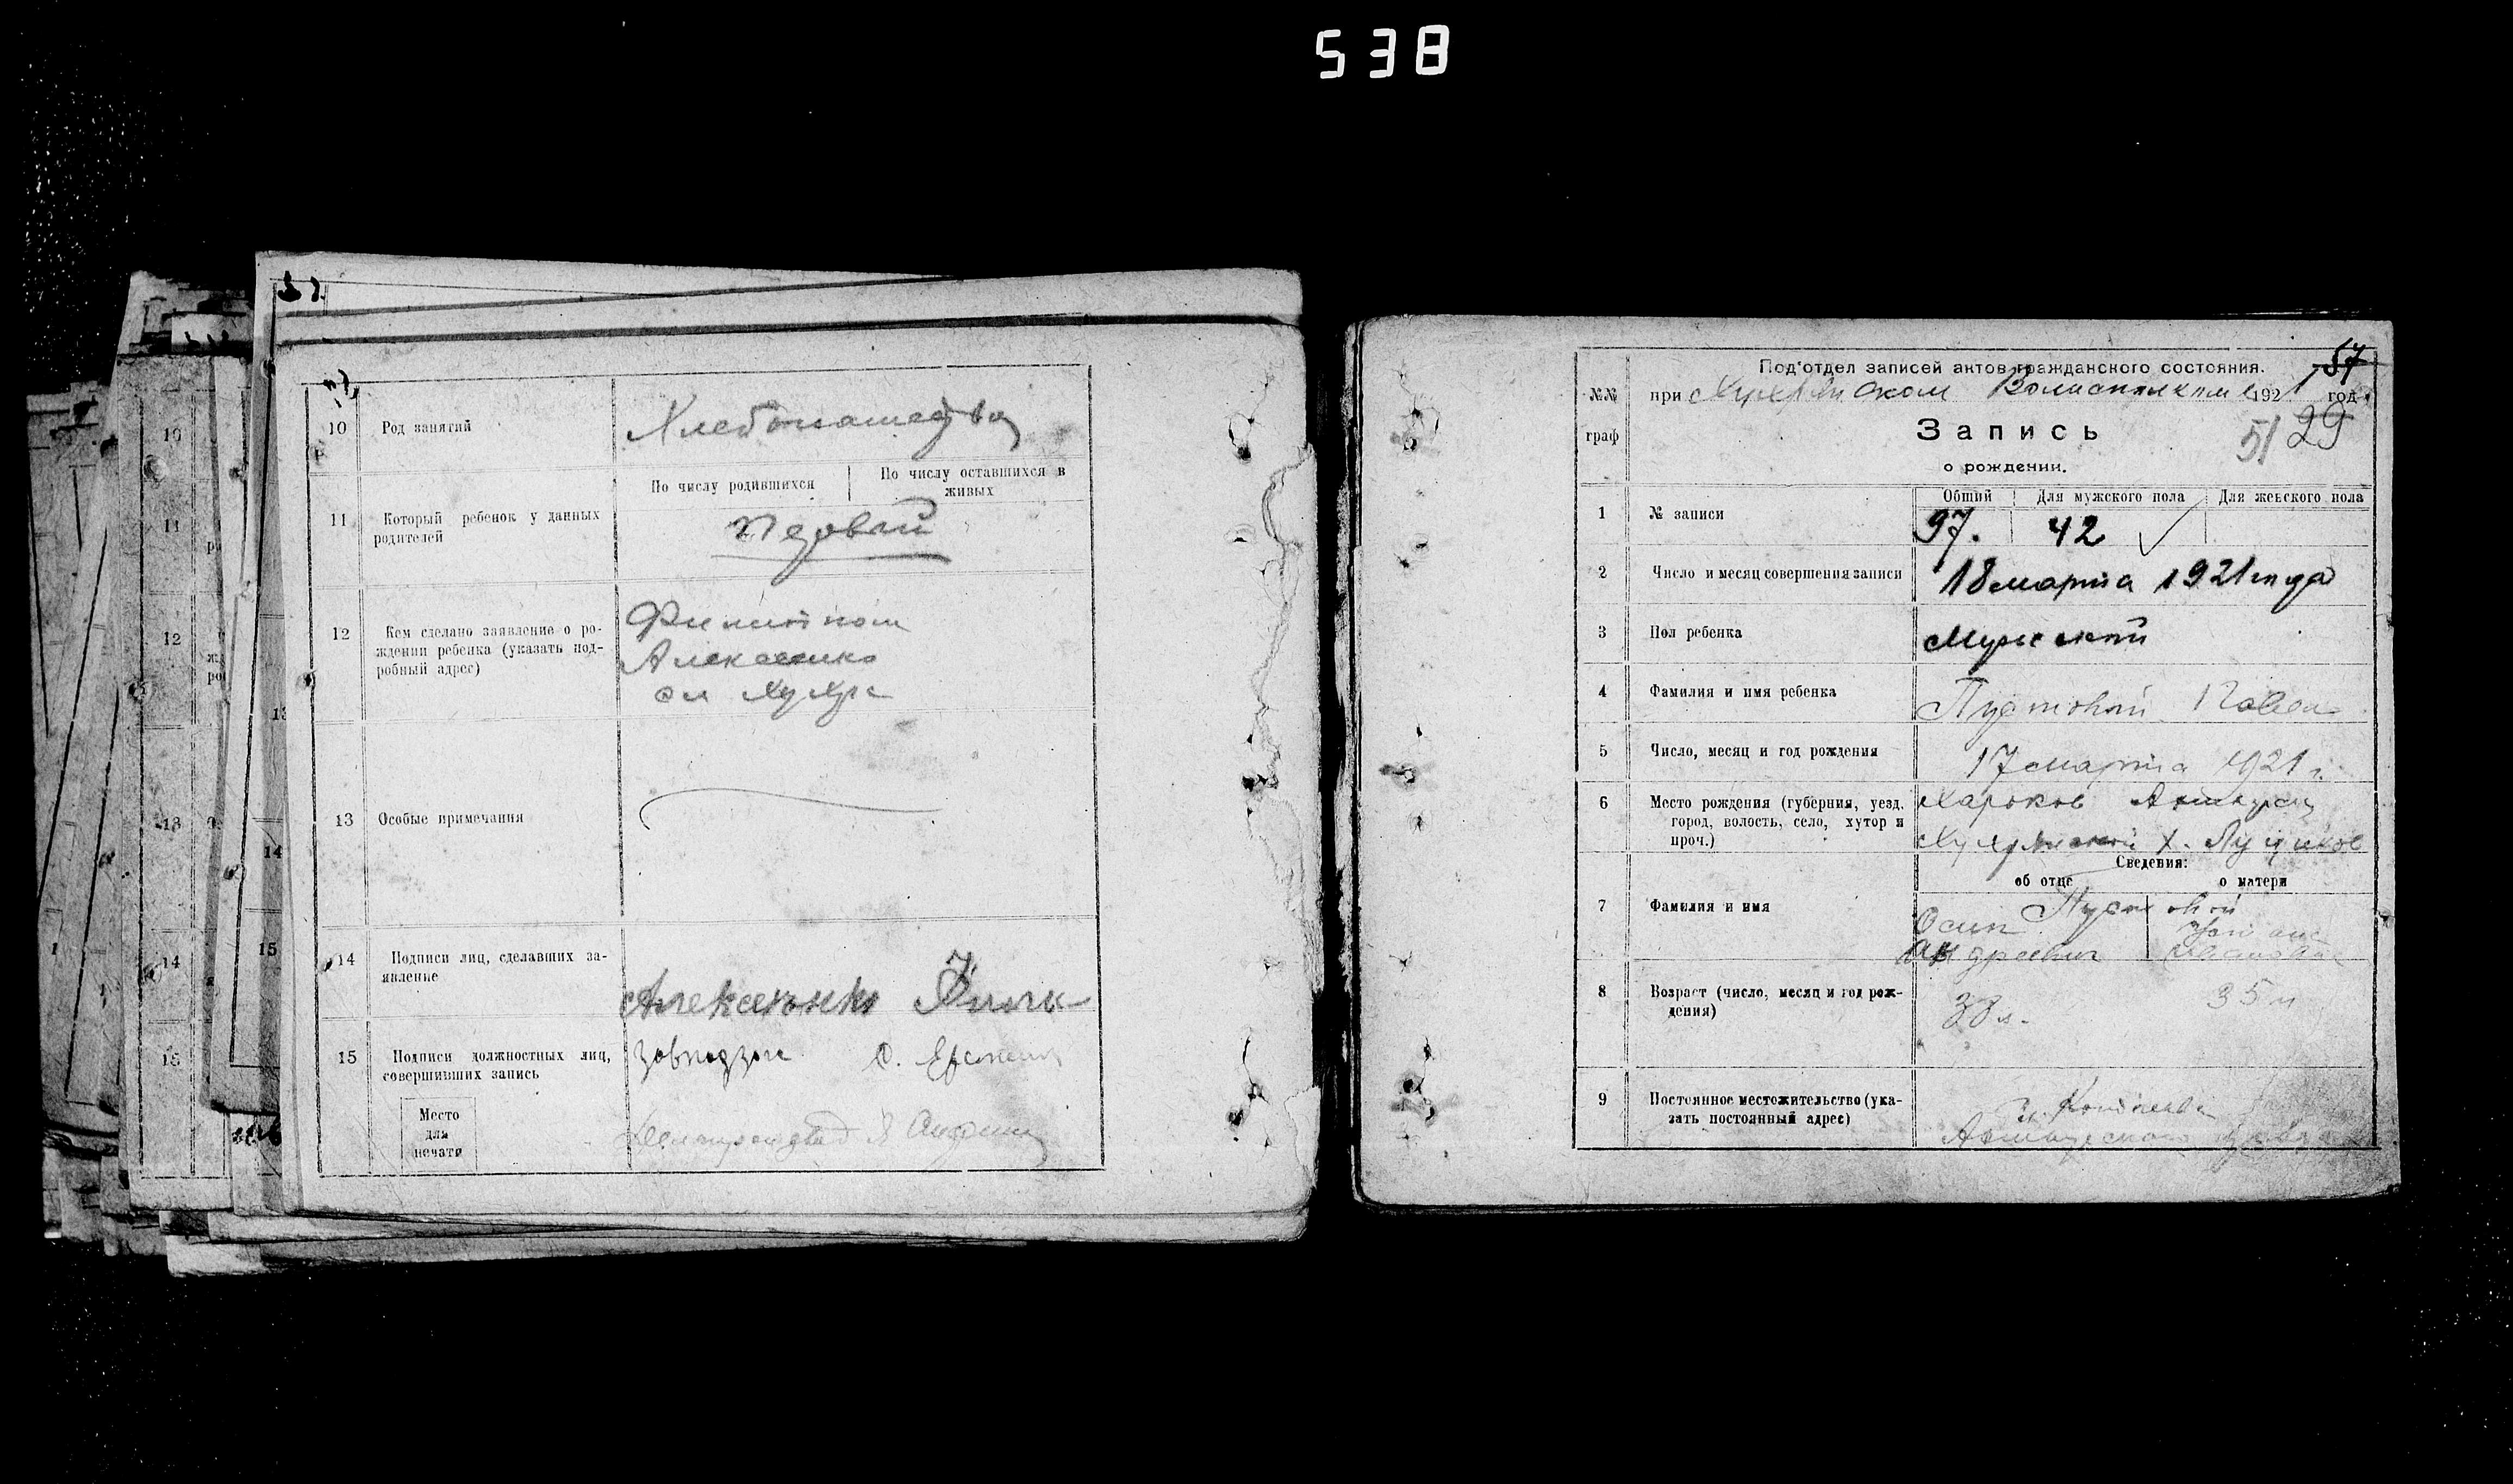 538
10 Род занятий Хлебопашество
По числу родившихся По числу оставшихся в живых
11 Который ребенок у данных родителей
первый
12 Кем сделано заявление о ро-
ждении ребенка (указать под-
робный адрес)
Филиппом
Алексеенко
сл Хухра
13 Особые примечания
14 Подписи лиц, сделавших за-
явление
Алексеенко
15 Подписи должностных лиц,
совершивших запись
Завподзаг
Место
для
печати
57
Под'отдел записей актов гражданского состояния.
№№ при Хухрянском Волисполкоме 1921 год
граф
Запись
51 29
о рождении.
Общий Для мужского пола Для женского пола
1 № записи 97. 42
2 Число и месяц совершения записи 18 марта 1921 года
3 Пол ребенка Мужской
4 Фамилия и имя ребенка Пустовой Павел
5 Число, месяц и год рождения 17 марта 1921 г.
6 Место рождения (губерния, уезд,
город, волость, село, хутор и
проч.)
Харьков Ахтырск
Хухрянской х.
Сведения:
об отце о матери
7 Фамилия и имя Пустовой
Осип
Андреевич Ивановна
8 Возраст (число, месяц и год рож-
дения)
38 л. 35 л
9 Постоянное местожительство (ука-
зать постоянный адрес)
Ахтырского уезда
10
11
12
13
14
15